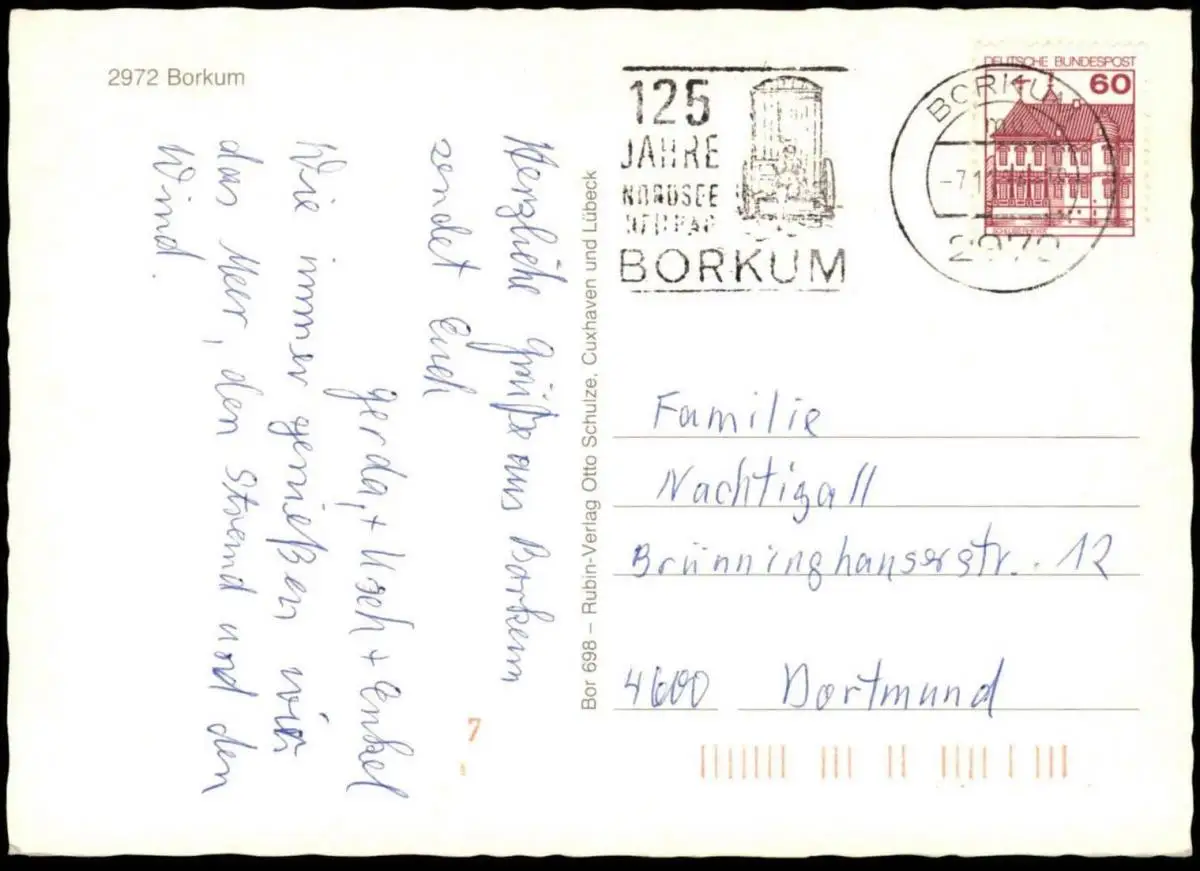 2972 Borkum
Herzliche Grüße aus Borkum
sendet Euch
Gerda, + Usch + Enkel
Wie immer genießen wir
das Meer, den Strand und den
Wind.
Bor 698 – Rubin-Verlag Otto Schulze, Cuxhaven und Lübeck
125
JAHRE
NORDSEE
BORKUM
BORKUM
2972
DEUTSCHE BUNDESPOST
60
SCHLOSS RHEYDT
Familie
Nachtigall
Brünninghauserstr. 12
4600 Dortmund
7